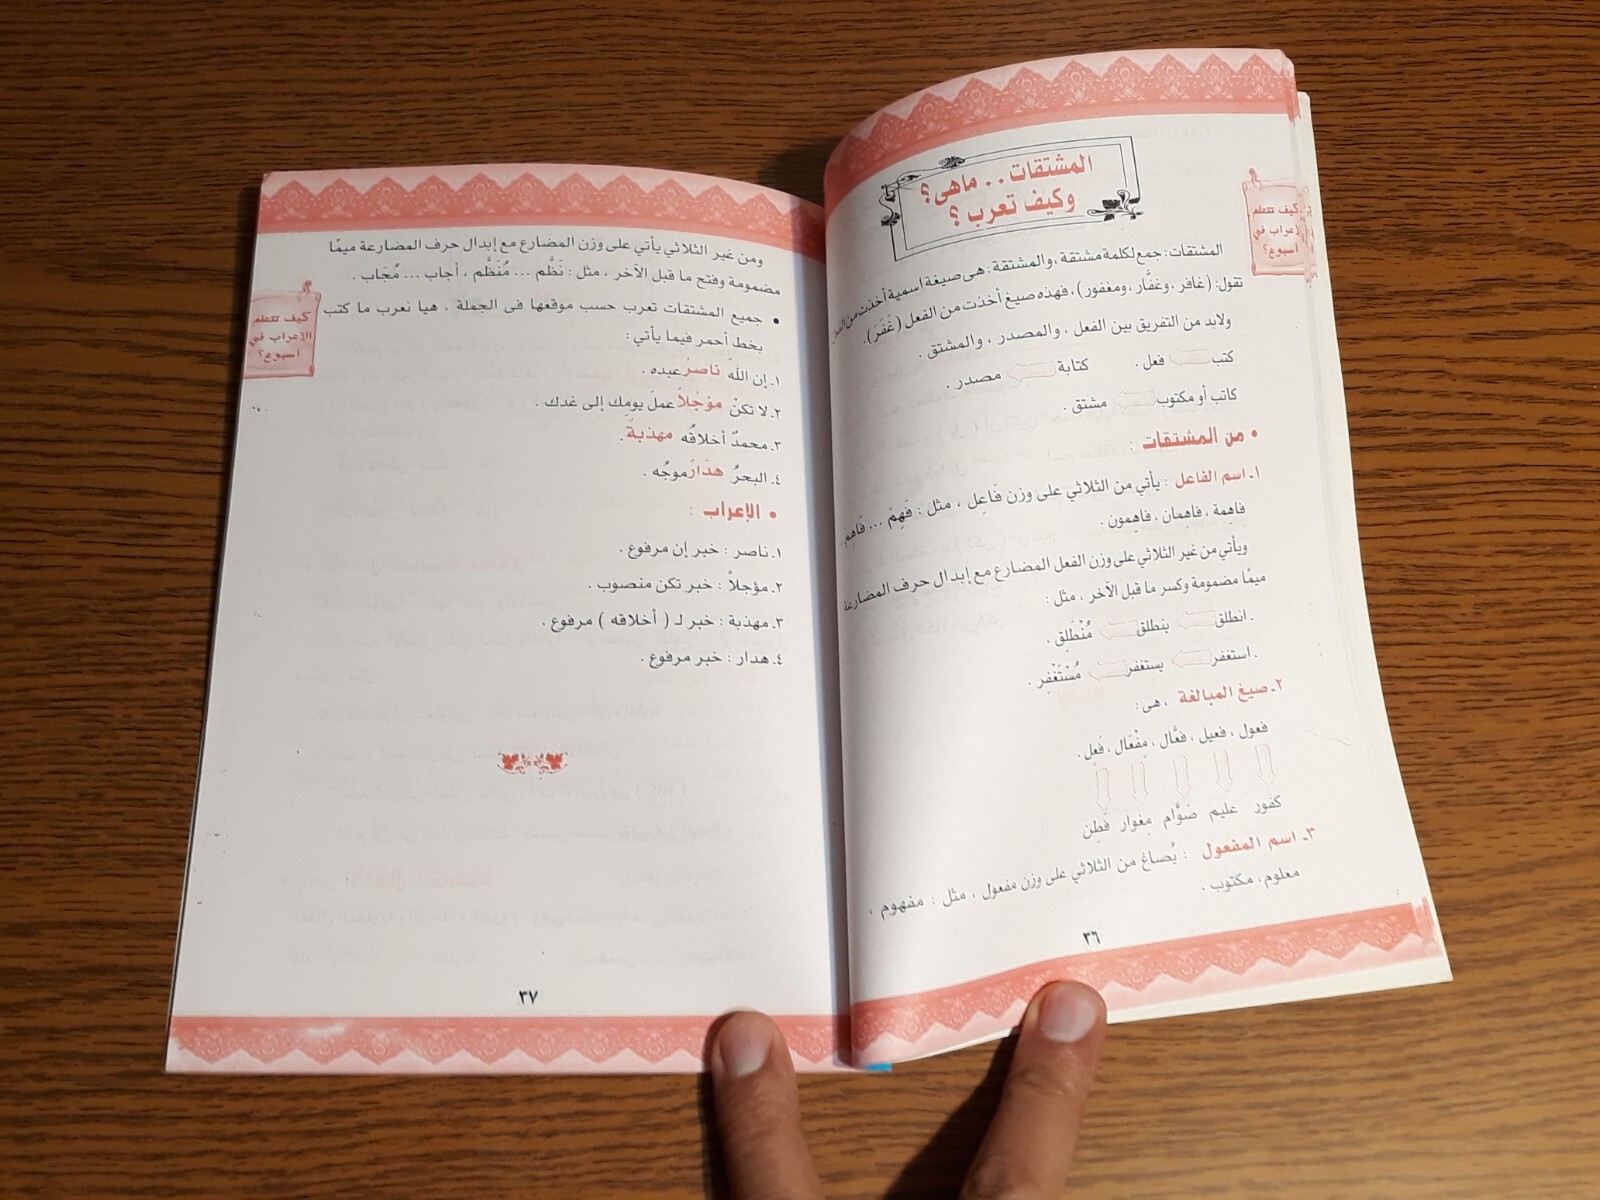 المشتقات .. ماهى؟
وكيف تعرب ؟
كيف تتعلم
الإعراب في
أسبوع؟
المشتقات: جمع لكلمة مشتقة، والمشتقة: هى صيغة اسمية أخذت من
تقول: (غافر، وغفَّار، ومغفور)، فهذه صيغ أخذت من الفعل (غَفَرَ).
ولابد من التفريق بين الفعل ، والمصدر ، والمشتق .
كتب فعل . كتابة مصدر .
كاتب أو مكتوب مشتق .
• من المشتقات :
١ـ اسم الفاعل : يأتي من الثلاثي على وزن فَاعِل ، مثل : فَهِمَ ... فَاهِم،
فاهِمة ، فاهِمان ، فاهِمون .
ويأتي من غير الثلاثي على وزن الفعل المضارع مع إبدال حرف المضارعة
ميمًا مضمومة وكسر ما قبل الآخر ، مثل :
. انطلق ينطلق مُنْطَلِق .
. استغفر يستغفر مُسْتَغْفِر .
٢ـ صيغ المبالغة ، هى :
فعول ، فعيل ، فعَّال ، مِفْعَال ، فَعِل .
كفور عليم صَوَّام مِغوار فَطِن
٣ـ اسم المفعول : يُصاغ من الثلاثي على وزن مفعول ، مثل : مفهوم ،
معلوم، مكتوب .
٣٦
ومن غير الثلاثي يأتي على وزن المضارع مع إبدال حرف المضارعة ميمًا
مضمومة وفتح ما قبل الآخر ، مثل : نَظَّم ... مُنَظَّم ، أجاب ... مُجَاب .
• جميع المشتقات تعرب حسب موقعها فى الجملة ، هيا نعرب ما كتب
بخط أحمر فيما يأتي :
١ـ إن اللهَ ناصرٌ عبده .
٢ـ لا تكنْ مؤجلاً عملَ يومِك إلى غدك .
٣ـ محمدٌ أخلاقُه مهذبةٌ .
٤ـ البحرُ هدارٌ موجُه .
• الإعراب :
١ـ ناصر : خبر إن مرفوع .
٢ـ مؤجلاً : خبر تكن منصوب .
٣ـ مهذبة : خبر لـ ( أخلاقه ) مرفوع .
٤ـ هدار : خبر مرفوع .
كيف تتعلم
الإعراب في
أسبوع؟
٣٧